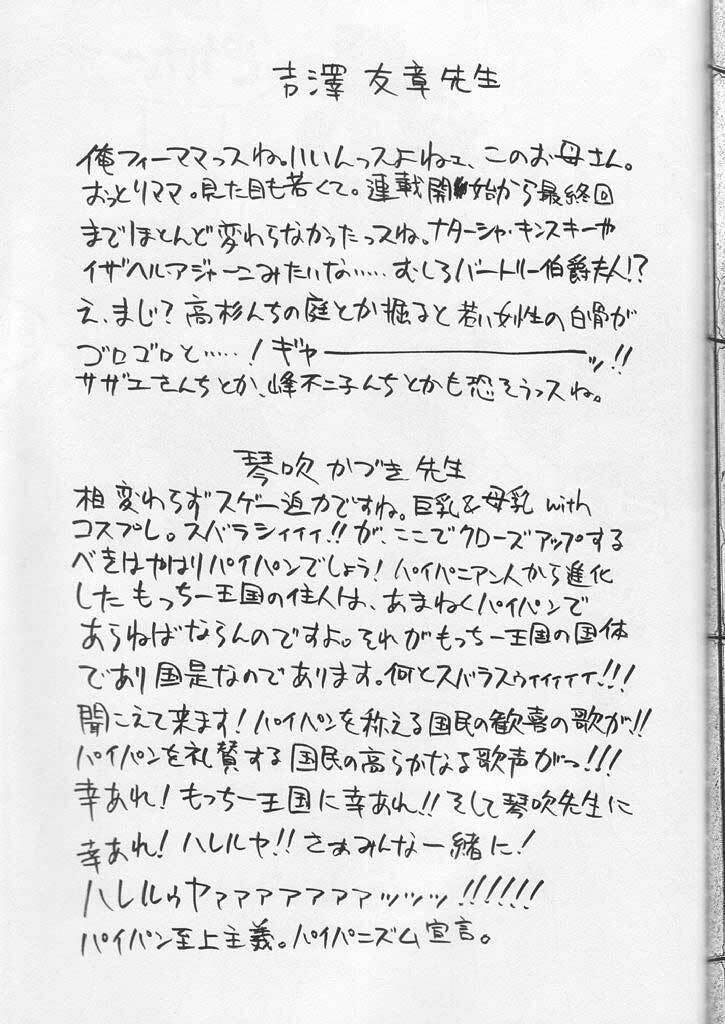 吉澤友章先生
俺フィーママっスね。いいんっスよねェ、このお母さん。
おっとりママ。見た目も若くて。連載開始から最終回
までほとんど変わらなかったっスね。ナターシャ・キンスキーや
イザベル・アジャーニみたいな……むしろバートリー伯爵夫人!?
え、まじ?高杉んちの庭とか掘ると若い女性の白骨が
ゴロゴロと……!ギャ――――――ッ!!
サザエさんちとか、峰不二子んちとかも恐そうっスね。
琴吹かづき先生
相変わらずスゲー迫力ですね。巨乳&母乳with
コスプレ。スバラシィィィ!!が、ここでクローズアップする
べきはやはりパイパンでしょう!パイパニアン人から進化
したもっちー王国の住人は、あまねくパイパンで
あらねばならんのですよ。それがもっちー王国の国体
であり国是なのであります。何とスバラスゥィィィィィ!!!
聞こえて来ます!パイパンを称える国民の歓喜の歌が!!
パイパンを礼賛する国民の高らかなる歌声がっ!!!
幸あれ!もっちー王国に幸あれ!!そして琴吹先生に
幸あれ!ハレルヤ!!さぁみんな一緒に!
ハレルゥヤァァァァァァァッッッ!!!!!!
パイパン至上主義。パイパニズム宣言。